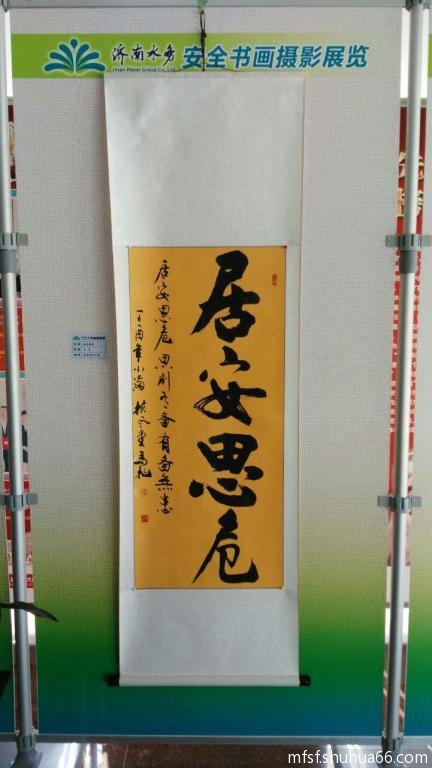 济南水务
Jinan Water Group Co., Ltd.
安全书画摄影展览
居安思危
居安思危 思则有备 有备无患
丁酉年小满
mfsf.shuhua66.com